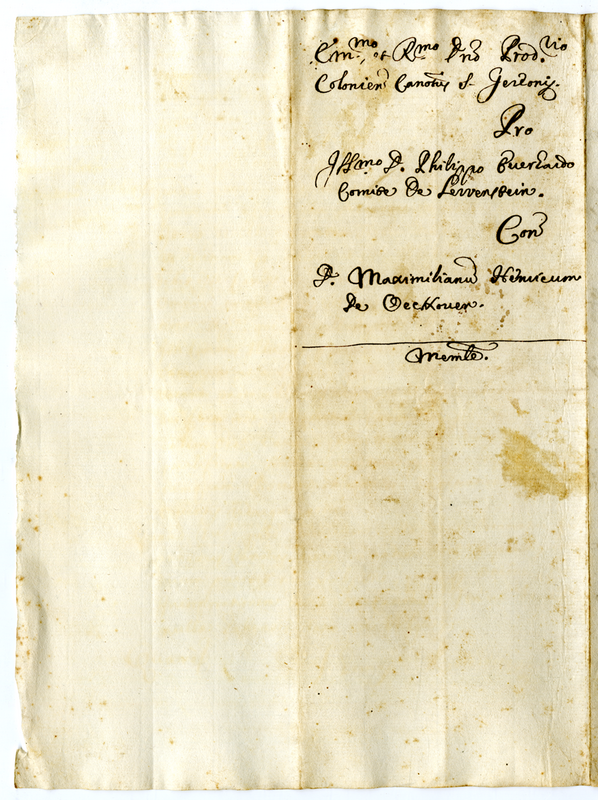 Em.mo et R.mo Dno Prod.rio
Colonien Canotus S. Gereonis.
Pro
Illmo D. Philippo Everardo
Comite De Lewenstein.
Con
D. Maximilianu Henricum
De Oeckoven.
Memle.